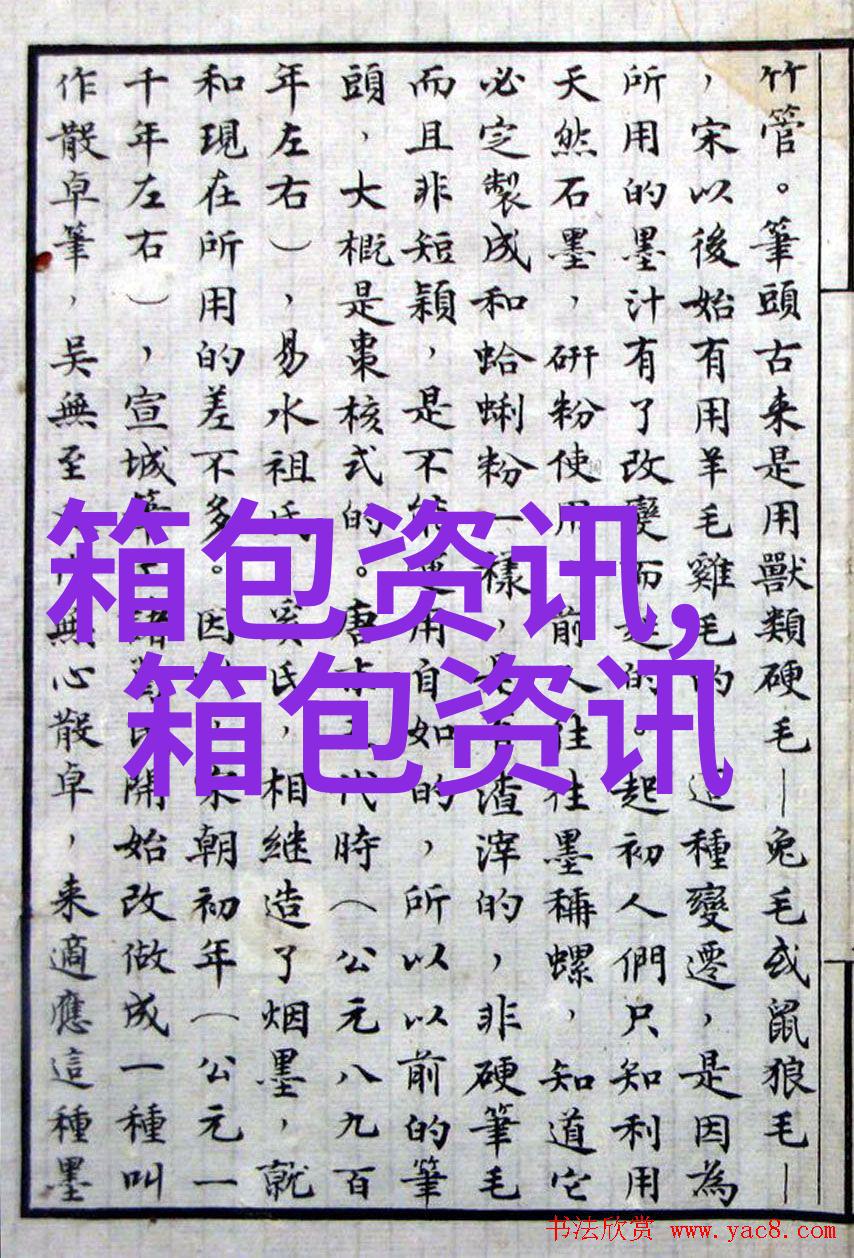 竹管。筆頭古来是用獸類硬毛—兔毛或鼠狼毛—
，宋以後始有用羊毛雞毛的 這種變遷，是因為
所用的墨汁有了改變而起的。起初人們只知利用
天然石墨，研粉使用 前人往往墨稱螺，知道它
必定製成和蛤蜊粉一樣，是有渣滓的，非硬筆毛
而且非短穎，是不能運用自如的，所以以前的筆
頭，大概是棗核式的。唐末五代時（公元八九百
年左右），易水祖氏 奚氏，相継造了烟墨，就
和現在所用的差不多。因 宋朝初年（公元一
千年左右），宣城筆工諸葛氏開始改做成一種叫
作散卓筆，吳無至 無心散卓，来適應這種墨
箱包资讯,
箱包资讯
书法欣赏 www.yac8.com